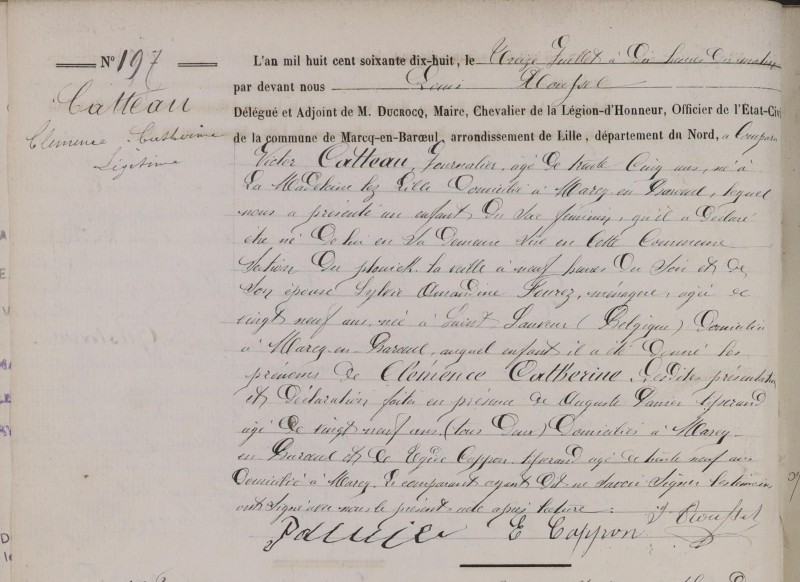 N° 197
Catteau
Clemence Catherine
Légitime
L'an mil huit cent soixante dix-huit, le treize Juillet à Dix heures du matin
par devant nous Louis
Délégué et Adjoint de M. DUCROCQ, Maire, Chevalier de la Légion-d'Honneur, Officier de l'Etat-Civi
de la commune de Marcq-en-Barœul, arrondissement de Lille, département du Nord, a Compar
Victor Catteau, Journalier, agé de trente Cinq ans, né à
La Madeleine lez Lille Domicilié à Marcq en Baroeul, lequel
nous a présenté un enfant du sexe féminin, qu'il a Déclaré
être né de lui en sa Demeure sise en Cette Commune
Section du plouick la veille à neuf heures du Soir et de
Son épouse Sylvie Amandine Fourez, ménagère, agée de
vingt neuf ans, née à Saint Sauveur (Belgique) Domiciliée
à Marcq-en-Baroeul, auquel enfant il a été Donné les
prénoms de Clémence Catherine. Lesdites présentation
et Déclaration faites en présence de Auguste
agé de vingt neuf ans (tous Deux) Domiciliés à Marcq-
en Baroeul et de Cappon agé de trente neuf ans
Domicilié à Marcq. Le comparant ayant Dit ne Savoir Signer les témoins
ont Signé avec nous le présent acte après lecture.
E Cappon